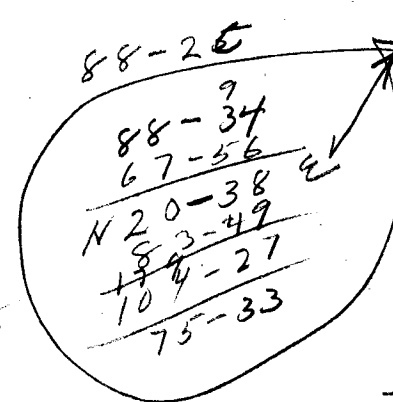 88-25
9
88-34
67-56
N20-38E
83-49
104-27
75-33